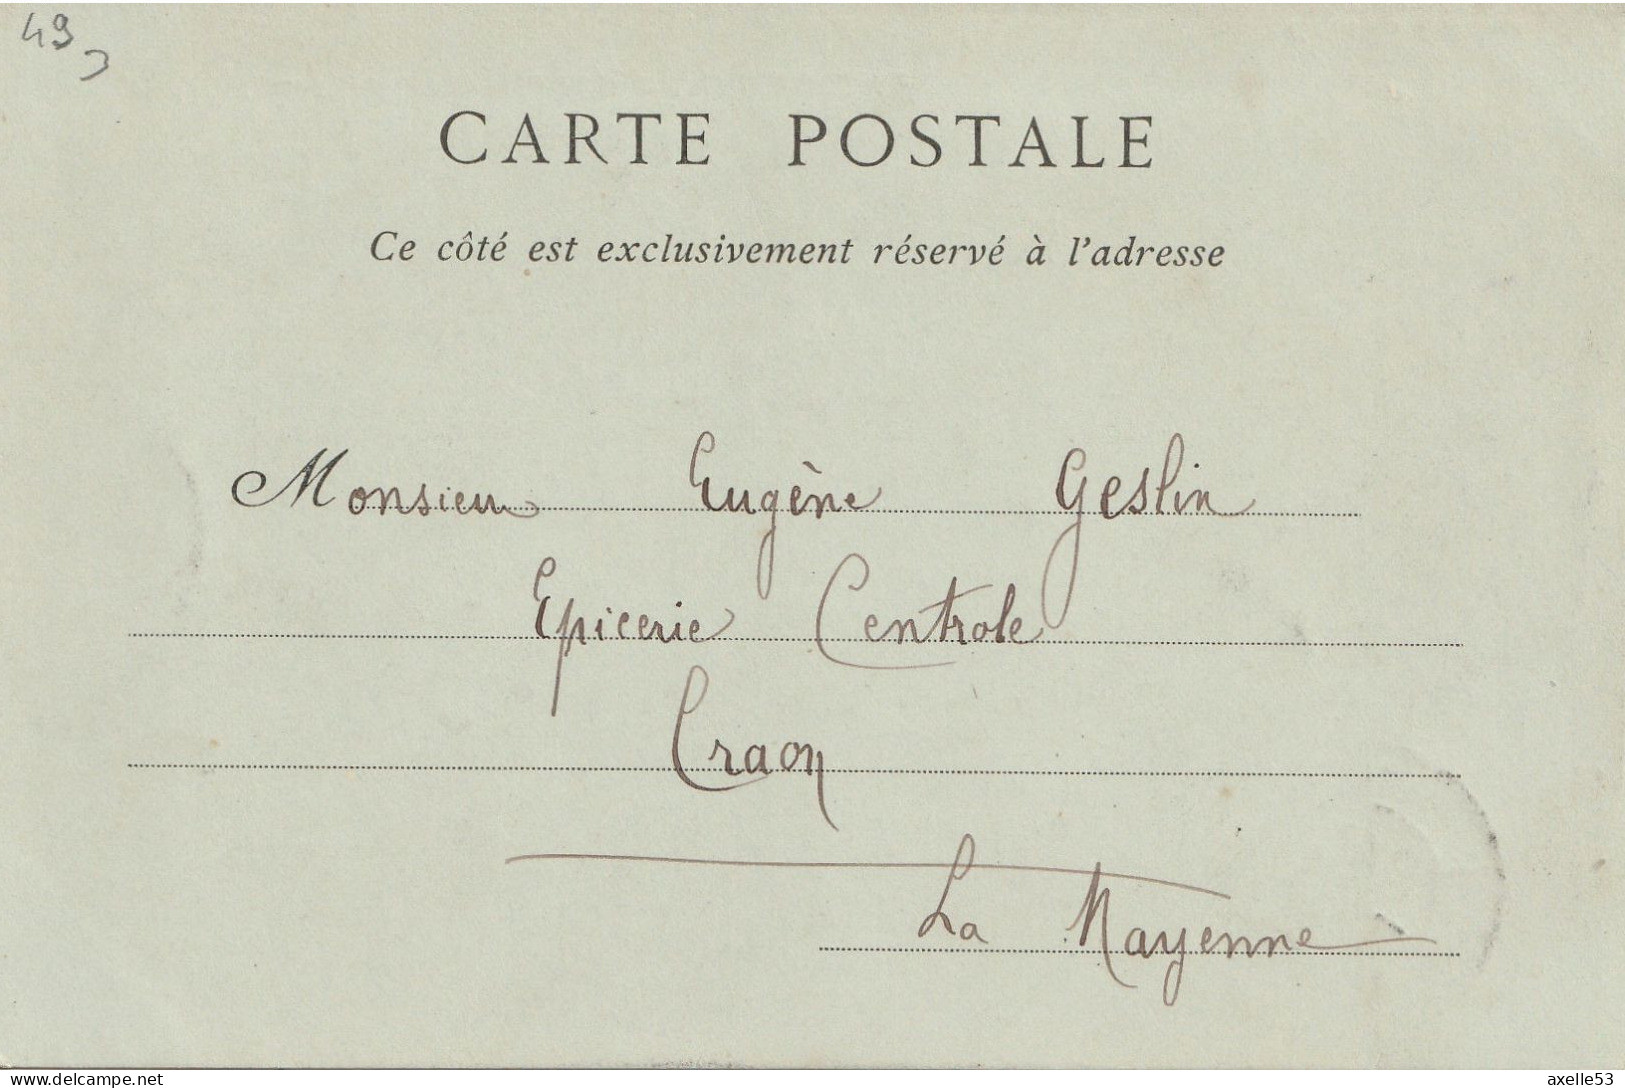 49
CARTE POSTALE
Ce côté est exclusivement réservé à l'adresse
Monsieur Eugène Geslin
Epicerie Centrale
Craon
La Mayenne
www.delcampe.net
axelle53